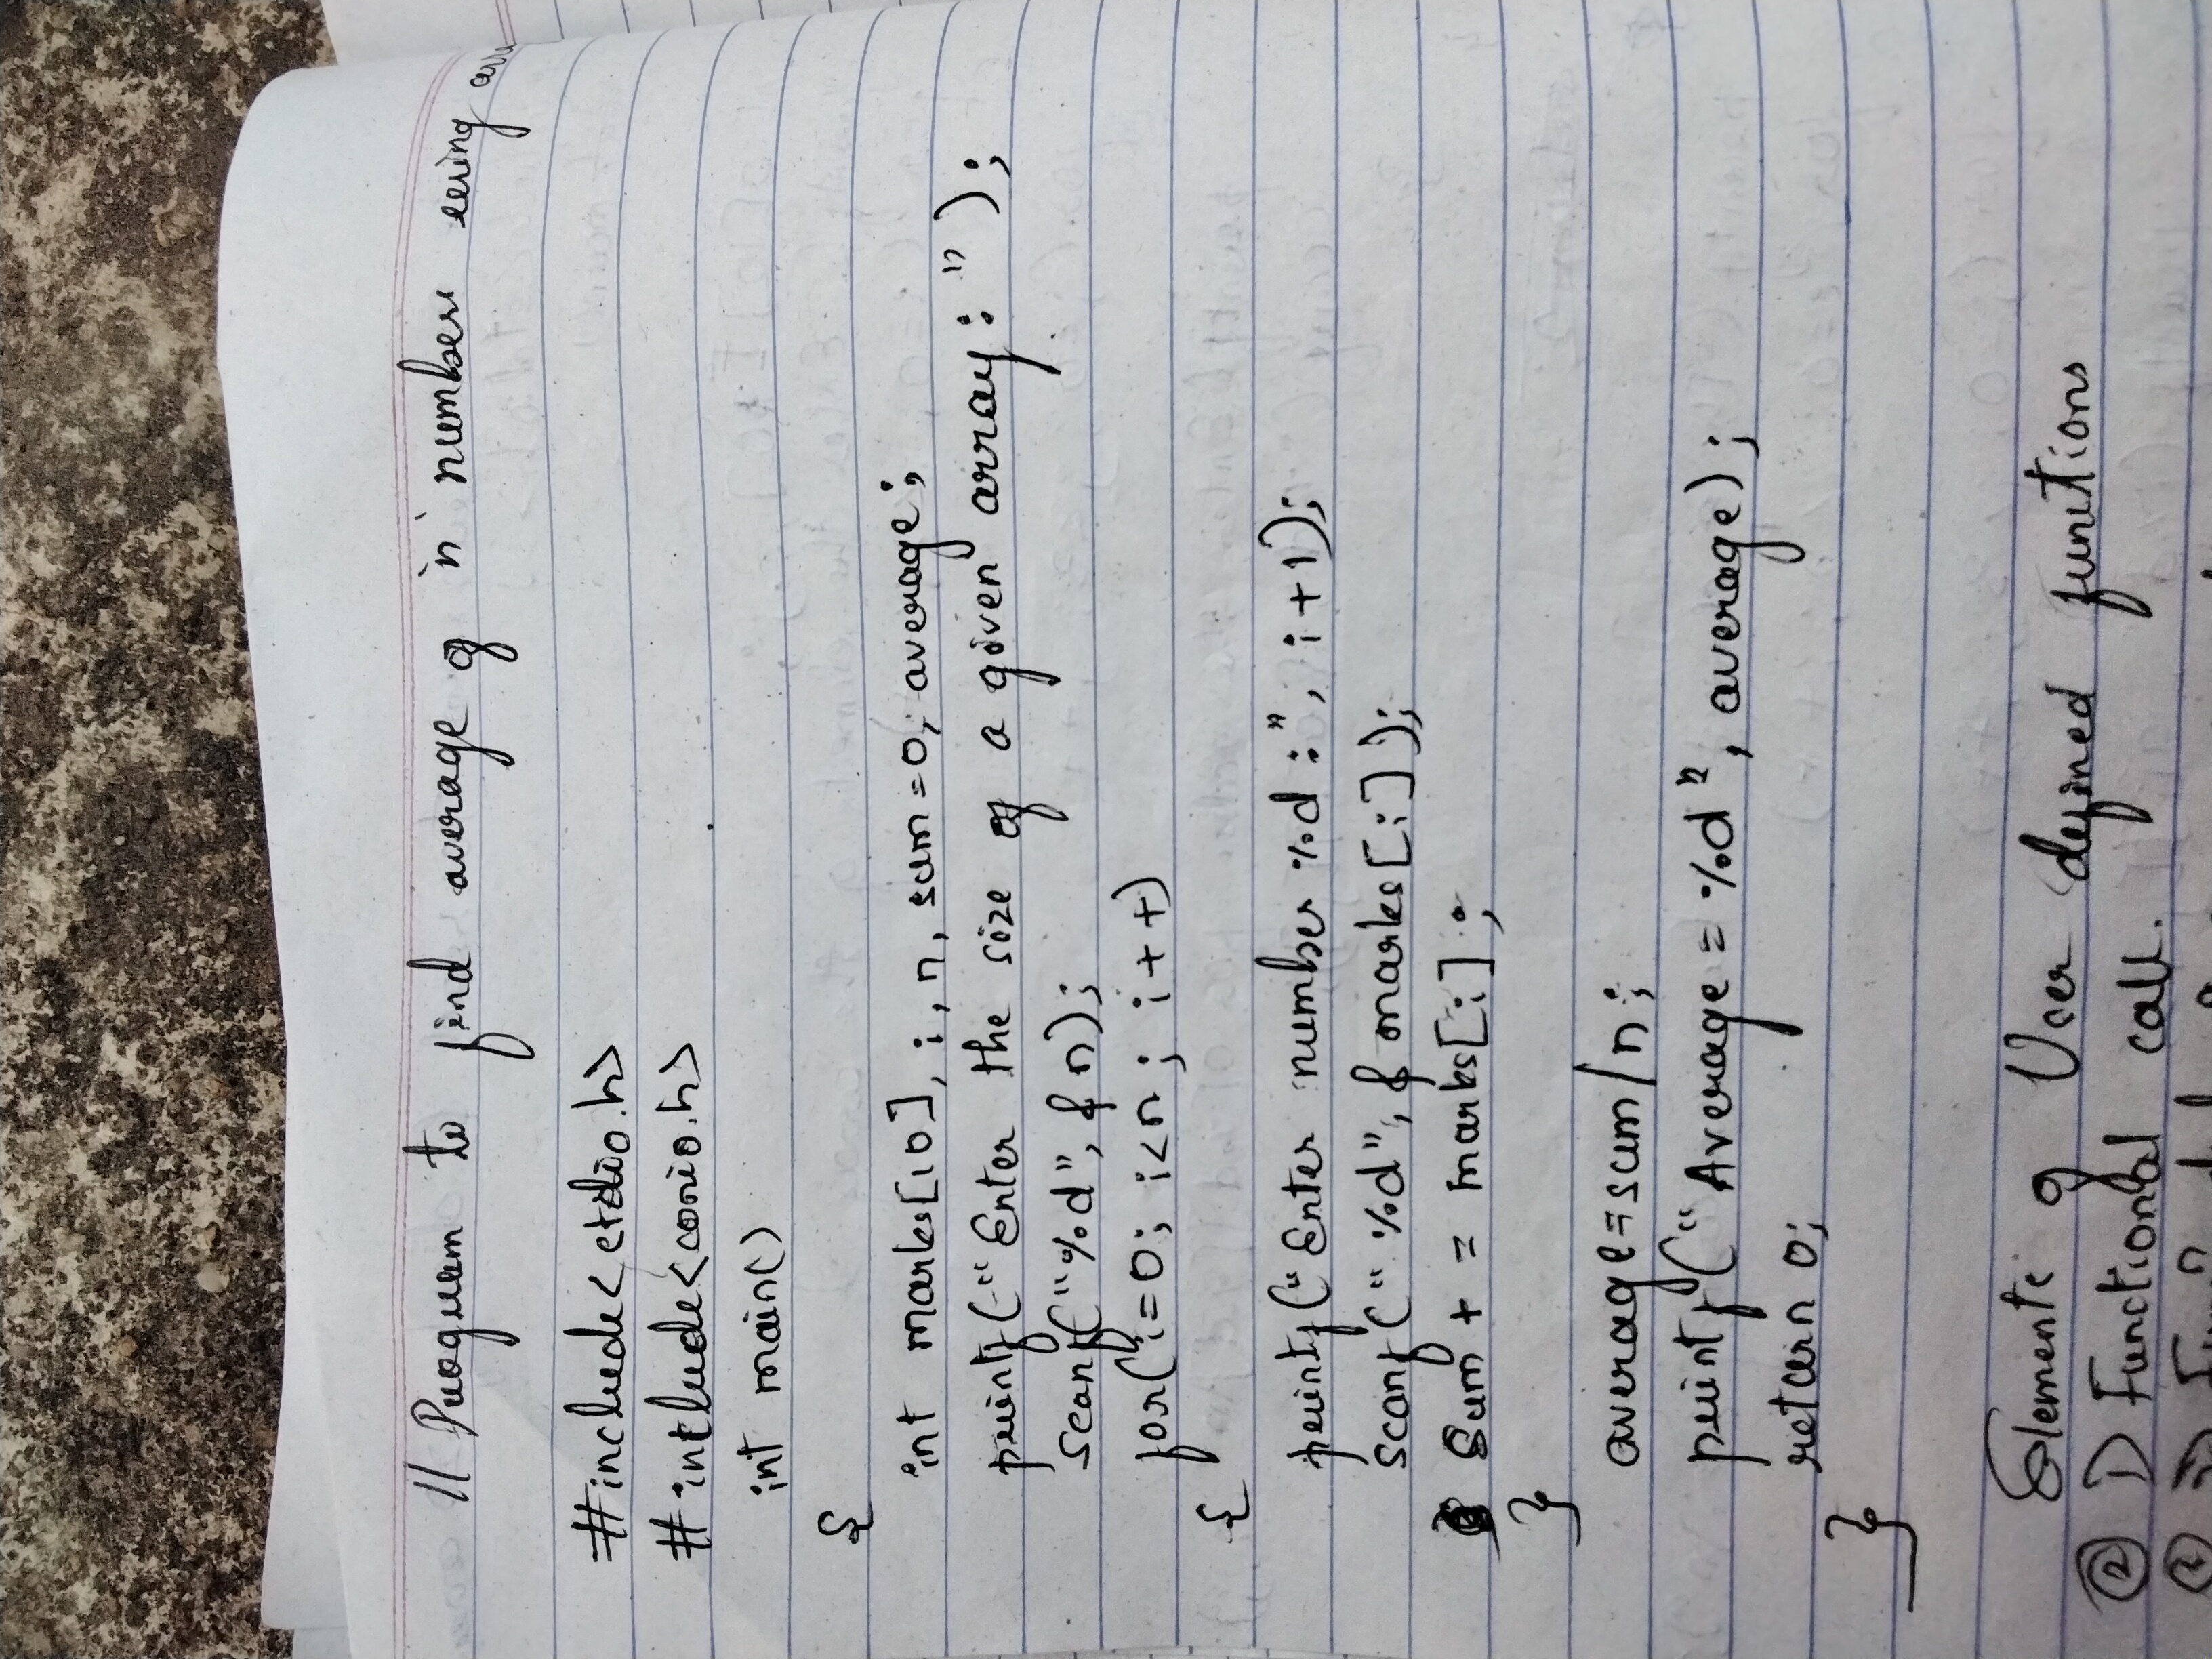 // Program to find average of 'n' numbers using
#include<stdio.h>
#include<conio.h>
int main()
{
int marks[10], i, n, sum=0, average;
printf("Enter the size of a given array: ");
scanf("%d", &n);
for(i=0; i<n; i++)
{
printf("Enter number %d :", i+1);
scanf("%d", &marks[i]);
Sum + = marks[i];
}
average=sum/n;
printf("Average = %d", average);
return 0;
}
Elements of User defined functions
② 1) Functional call.